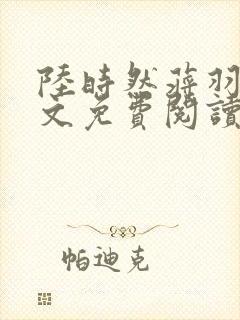 陸時然蔣羽
文免費閱讀
帕迪克